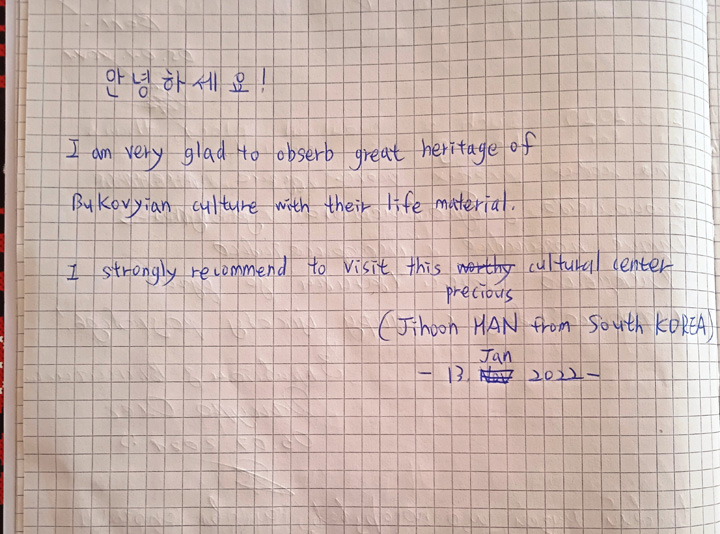 안녕하세요!
I am very glad to obserb great heritage of
Bukovyian culture with their life material.
I strongly recommend to visit this worthy cultural center
precious
(Jihoon HAN from South KOREA)
Jan
- 13. Nov 2022-